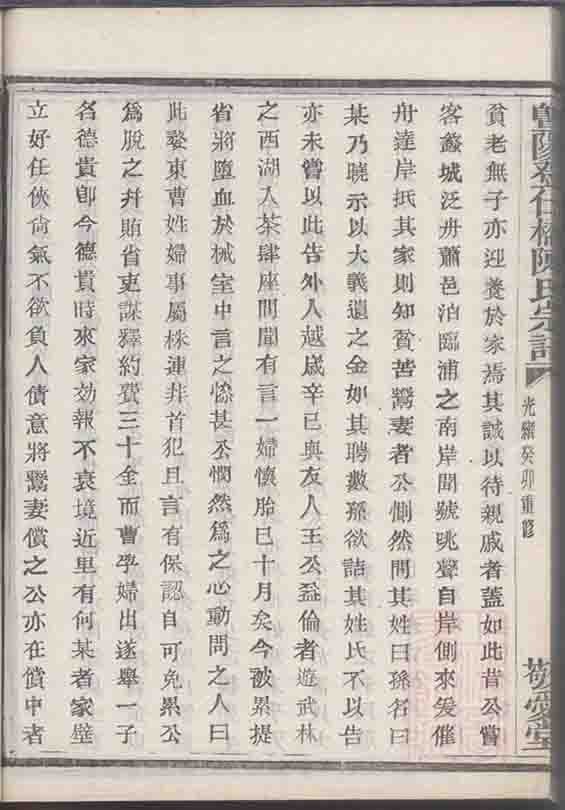 曾陽新石橋陳氏宗譜
光緒癸卯重修
敬愛堂
貧老無子亦迎養於家焉其誠以待親戚者蓋如此昔公嘗
客鹺城泛舟蕭邑泊臨浦之南岸聞號咷聲自岸側來爰催
舟達岸抵其家則知貧苦鬻妻者公惻然問其姓曰孫名曰
某乃曉示以大義遺之金如其聘數孫欲詰其姓氏不以告
亦未嘗以此告外人越歲辛巳與友人王公益倫者遊武林
之西湖入茶肆座間聞有言一婦懷胎已十月矣今被累提
省將墮血於械室中言之慘甚公憫然為之心動問之人曰
此嫠東曹姓婦事屬株連非首犯且言有保認自可免累公
為脫之幷賄省吏謀釋約費三十金而曹孕婦出遂舉一子
名德貴卽今德貴時來家効報不衰境近里有何某者家壁
立好任俠尙氣不欲負人債意將鬻妻償之公亦在償中者